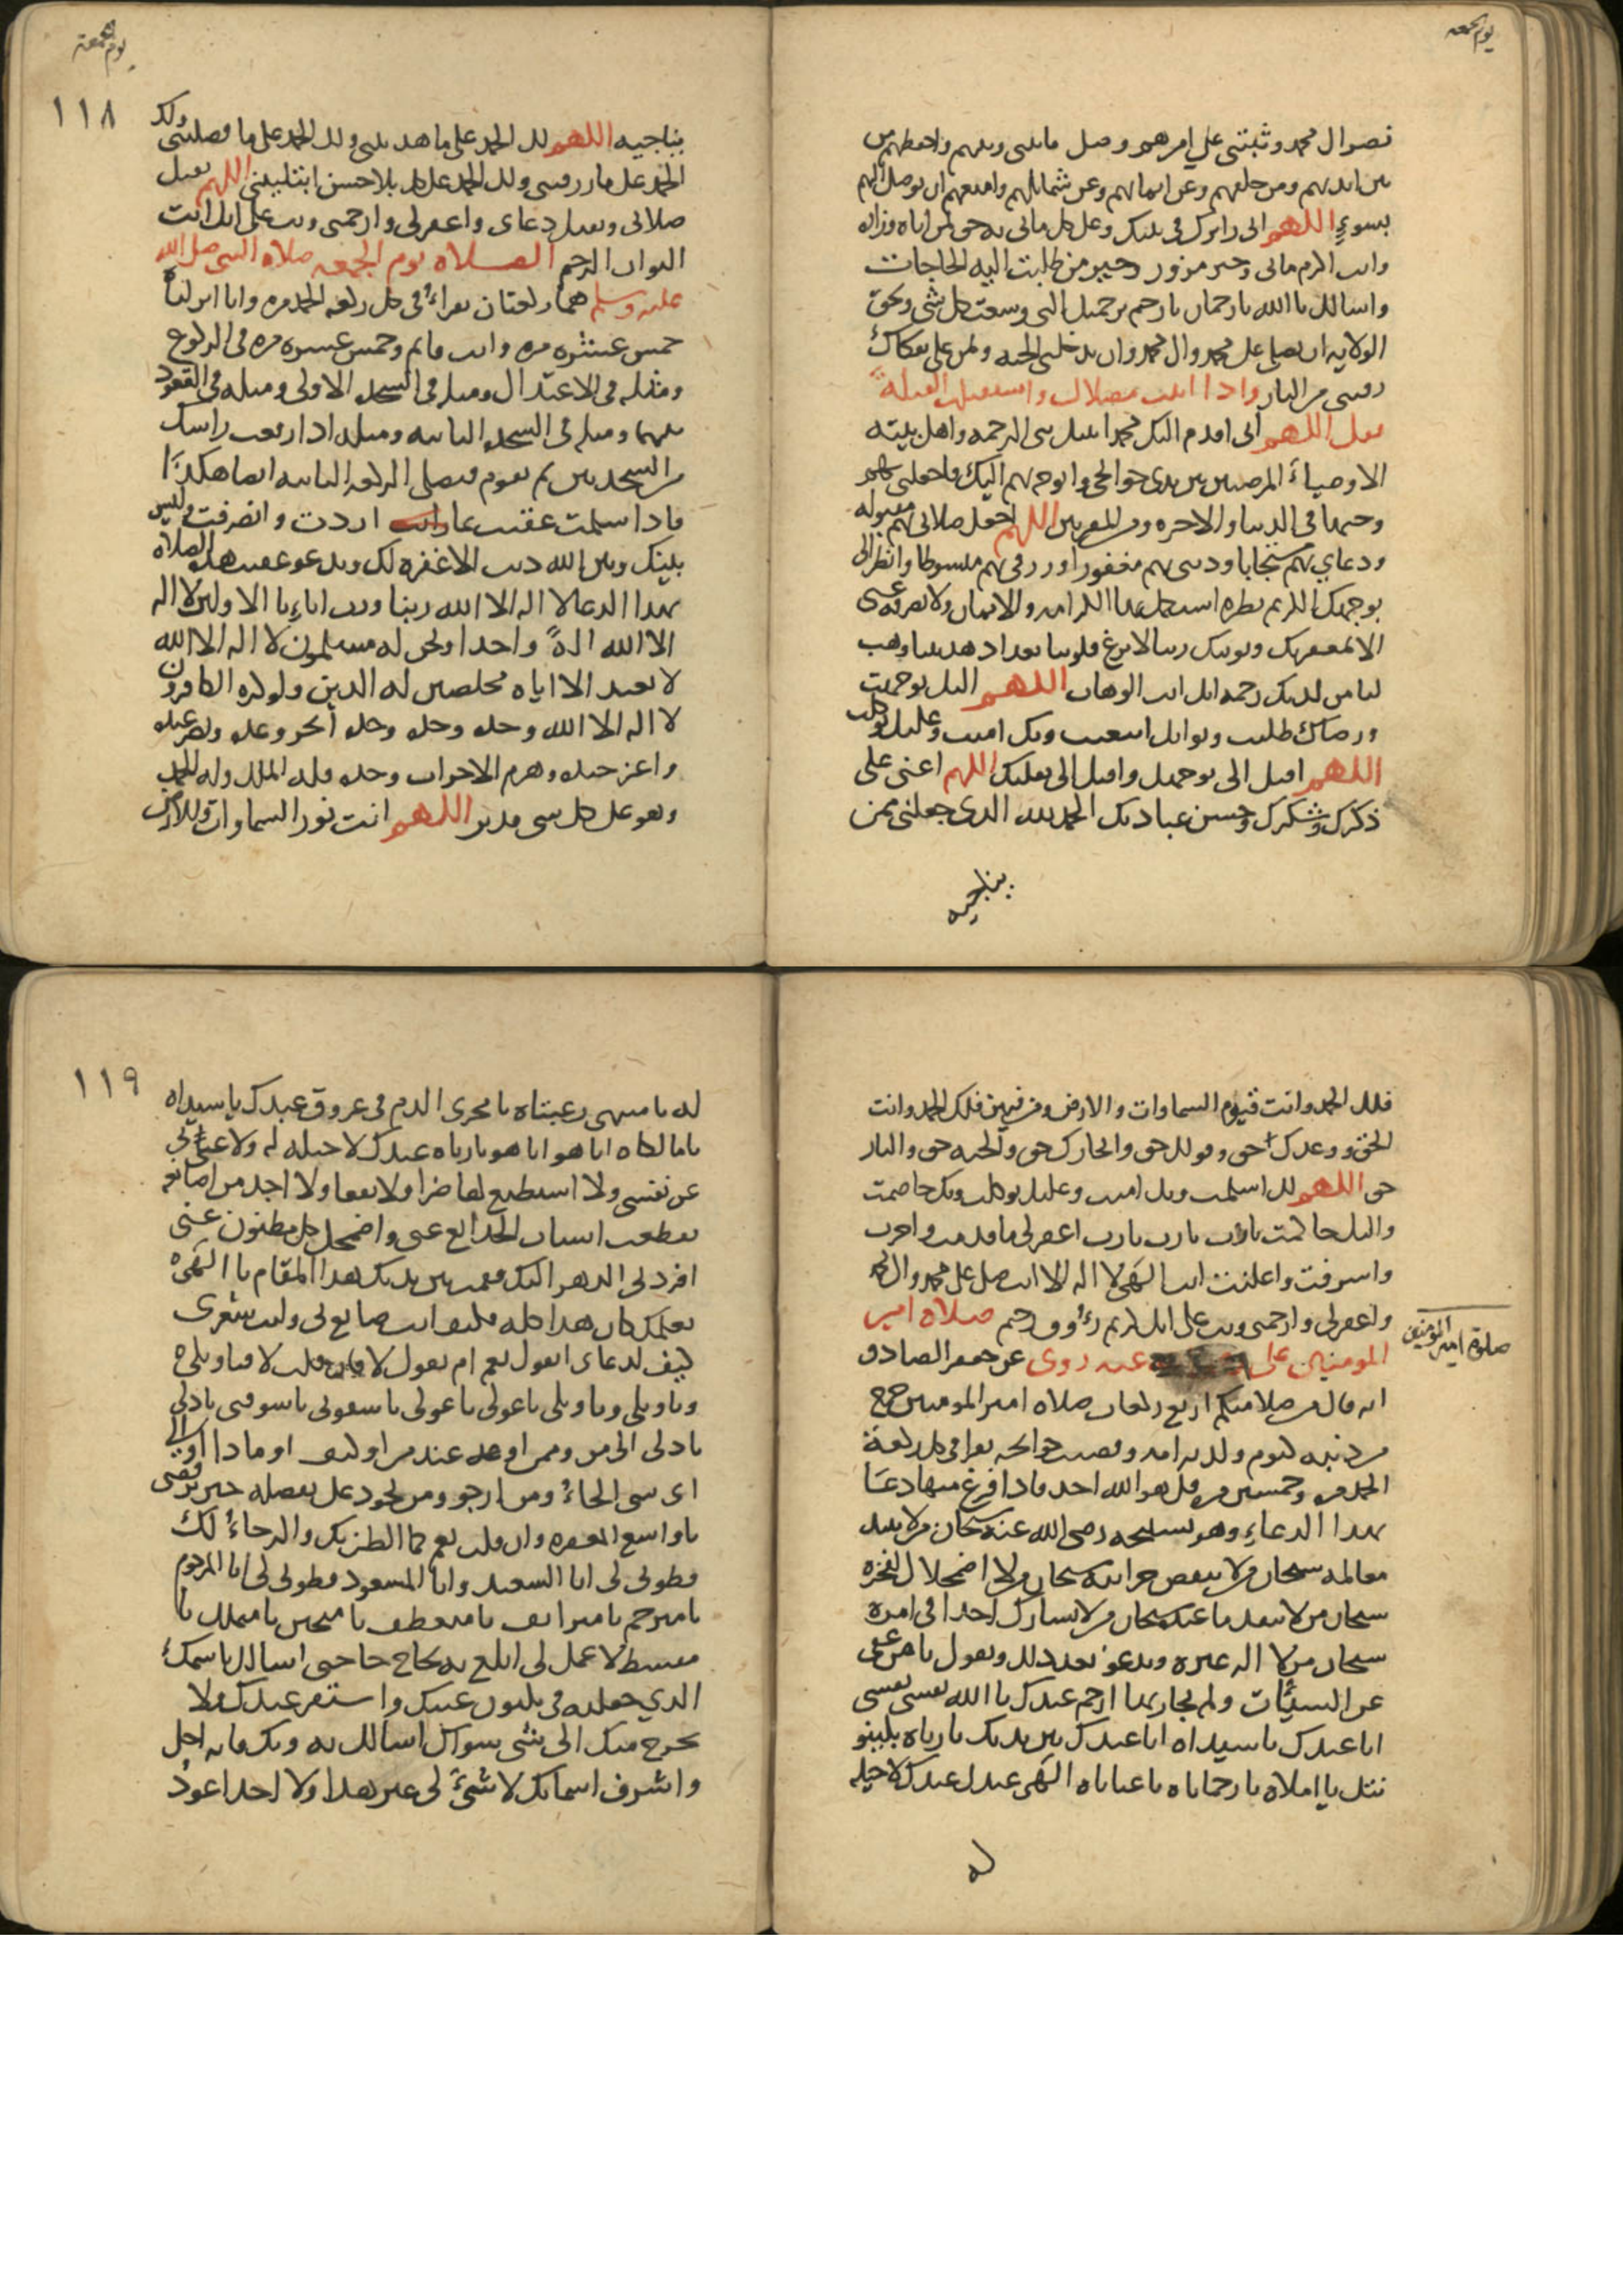 يوم الجمعه
نصر ال محمد وثبتني على امرهم وصل مابيني وبينهم واحفظهم من
بين ايديهم ومن خلفهم وعن ايمانهم وعن شمائلهم وامنعهم ان يوصل اليهم
بسوءٍ اللهم اني زائرك في بيتك وعلى كل ماتي به حق لمن اتاه وزاره
وانت اكرم ماتي وخير مزور وخير من طلبت اليه الحاجات
واسالك يا الله يا رحمان يا رحيم برحمتك التي وسعت كل شي وبحق
الولايه ان تصلي على محمد وال محمد وان تدخلني الجنه وتمن علي بفكاك
رقبتي من النار واذا اتيت مصلاك واستقبلت القبلة
فقل اللهم اني اقدم اليك محمدا نبيك نبي الرحمه واهل بيته
الاوصياءَ المرضيين بين يدي حوائجي واتوجه بهم اليك فاجعلني بهم
وجيها في الدنيا والاخره ومن المقربين اللهم اجعل صلاتي بهم مقبوله
ودعاي بهم مستجابا وذنبي بهم مغفورا ورزقي بهم مبسوطا وانظر الى
بوجهك الكريم نظره استكمل بها الكرامه والايمان ولا تصرفه عني
الا بمغفرتك وتوبتك ربنا لا تزغ قلوبنا بعد اذ هديتنا وهب
لنا من لدنك رحمه انك انت الوهاب اللهم اليك توجهت
ورضاك طلبت وثوابك ابتغيت وبك امنت وعليك توكلت
اللهم اقبل الي بوجهك واقبل الى بقلبي اللهم اعني على
ذكرك وشكرك وحسن عبادتك الحمد لله الذي جعلني ممن
يناجيه
يوم الجمعه
١١٨
يناجيه اللهم لك الحمد على ما هديتني ولك الحمد على ما فضلتني ولك
الحمد على ما رزقتني ولك الحمد على كل بلا حسن ابتليتني اللهم تقبل
صلاتي وتقبل دعاي واغفر لي وارحمني وتب علي انك انت
التواب الرحيم الصلاه يوم الجمعه صلاه النبي صلى الله
عليه وسلم هما ركعتان تقراءُ في كل ركعه الحمد مره وانا انزلناه
خمس عشره مره وانت قايم وخمس عشره مره في الركوع
ومثله في الاعتدال ومثله في السجده الاولى ومثله في القعود
بينهما ومثله في السجده الثانيه ومثله اذا رفعت راسك
من السجدتين ثم تقوم فتصلي الركعه الثانيه ايضا هكذا
فاذا سلمت عقبت بما اردت وانصرفت وليس
بينك وبين الله ذنب الا غفره لك وتدعو عقيب هذه الصلاه
بهذا الدعا لا اله الا الله ربنا ورب اباءِنا الاولين لا اله
الا الله الهً واحدا ونحن له مسلمون لا اله الا الله
لا نعبد الا اياه مخلصين له الدين ولو كره الكافرون
لا اله الا الله وحده وحده وحده انجز وعده ونصر عبده
واعز جنده وهزم الاحزاب وحده فله الملك وله الحمد
وهو على كل شي قدير اللهم انت نور السماوات والارض
فلك الحمد وانت قيوم السماوات والارض ومن فيهن فلك الحمد وانت
الحق ووعدك حق وقولك حق وانجازك حق والجنه حق والنار
حق اللهم لك اسلمت وبك امنت وعليك توكلت وبك خاصمت
واليك حاكمت يارب يارب يارب اغفر لي ما قدمت واخرت
واسرفت واعلنت انت الهي لا اله الا انت صل على محمد وال محمد
واغفر لي وارحمني وتب علي انك كريم رءُوف رحيم صلاه امير
صلوة امير المومنين
المومنين على عنه روي عن جعفر الصادق
انه قال من صلا منكم اربع ركعات صلاه امير المومنين خرج
من ذنبه كيوم ولدته امه وقضيت حوائجه يقرا في كل ركعة
الحمد مره وخمسين مره قل هو الله احد فاذا فرغ منها دعا
بهذا الدعاءِ وهو تسبيحه رضي الله عنه سبحان من لا تبيد
معالمه سبحان من لا تنقص خزائنه سبحان من لا اضمحلال لفخره
سبحان من لا ينفد ما عنده سبحان من لا يشارك احدا في امره
سبحان من لا اله غيره ويدعو بعد ذلك ويقول يا من عفى
عن السيئات ولم يجاز بها ارحم عبدك يا الله نفسي نفسي
انا عبدك يا سيداه انا عبدك بين يديك يا رباه
يا املاه يا رحماناه يا غياثاه الهى عبدك عبدك لا حيله
له
١١٩
له يا منتهى رغبتاه يا مجري الدم في عروق عبدك يا سيداه
يا مالكاه ايا هو ايا هو يا رباه عبدك لا حيله له ولا غنى لي
عن نفسي ولا استطيع لها ضرا ولا نفعا ولا اجد من اصانعه
تقطعت اسباب الخدائع عني واضمحل كل مظنون عني
افردني الدهر اليك فقمت بين يديك هذا المقام يا الهي
بعلمك كان هذا كله فكيف انت صانع لي وليت شعري
كيف لدعاي اتقول نعم ام تقول لا فان قلت لا فياويلي
وياويلي وياويلي ياعولي ياعولي ياشقوتي ياشقوتي ياذلي
ياذلي الى من وممن او عند من او كيف او ماذا او الى
اى شي الجاءُ ومن ارجو ومن يجود علي بفضله حين ترفضني
ياواسع المغفره وان قلت نعم كما الظن بك والرجاءُ لك
فطوبى لي انا السعيد وانا المسعود فطوبى لي انا المرحوم
يامترحم يا مترائف يا متعطف يا متحنن يا متملك يا
مقسط لا عمل لي ابلغ به نجاح حاجتي اسالك باسمك
الذي جعلته في مكنون غيبك واستقر عندك فلا
يخرج منك الى شي سواك اسالك به وبك فانه اجل
واشرف اسمائك لا شيءَ لي غير هذا ولا احد اعوذ